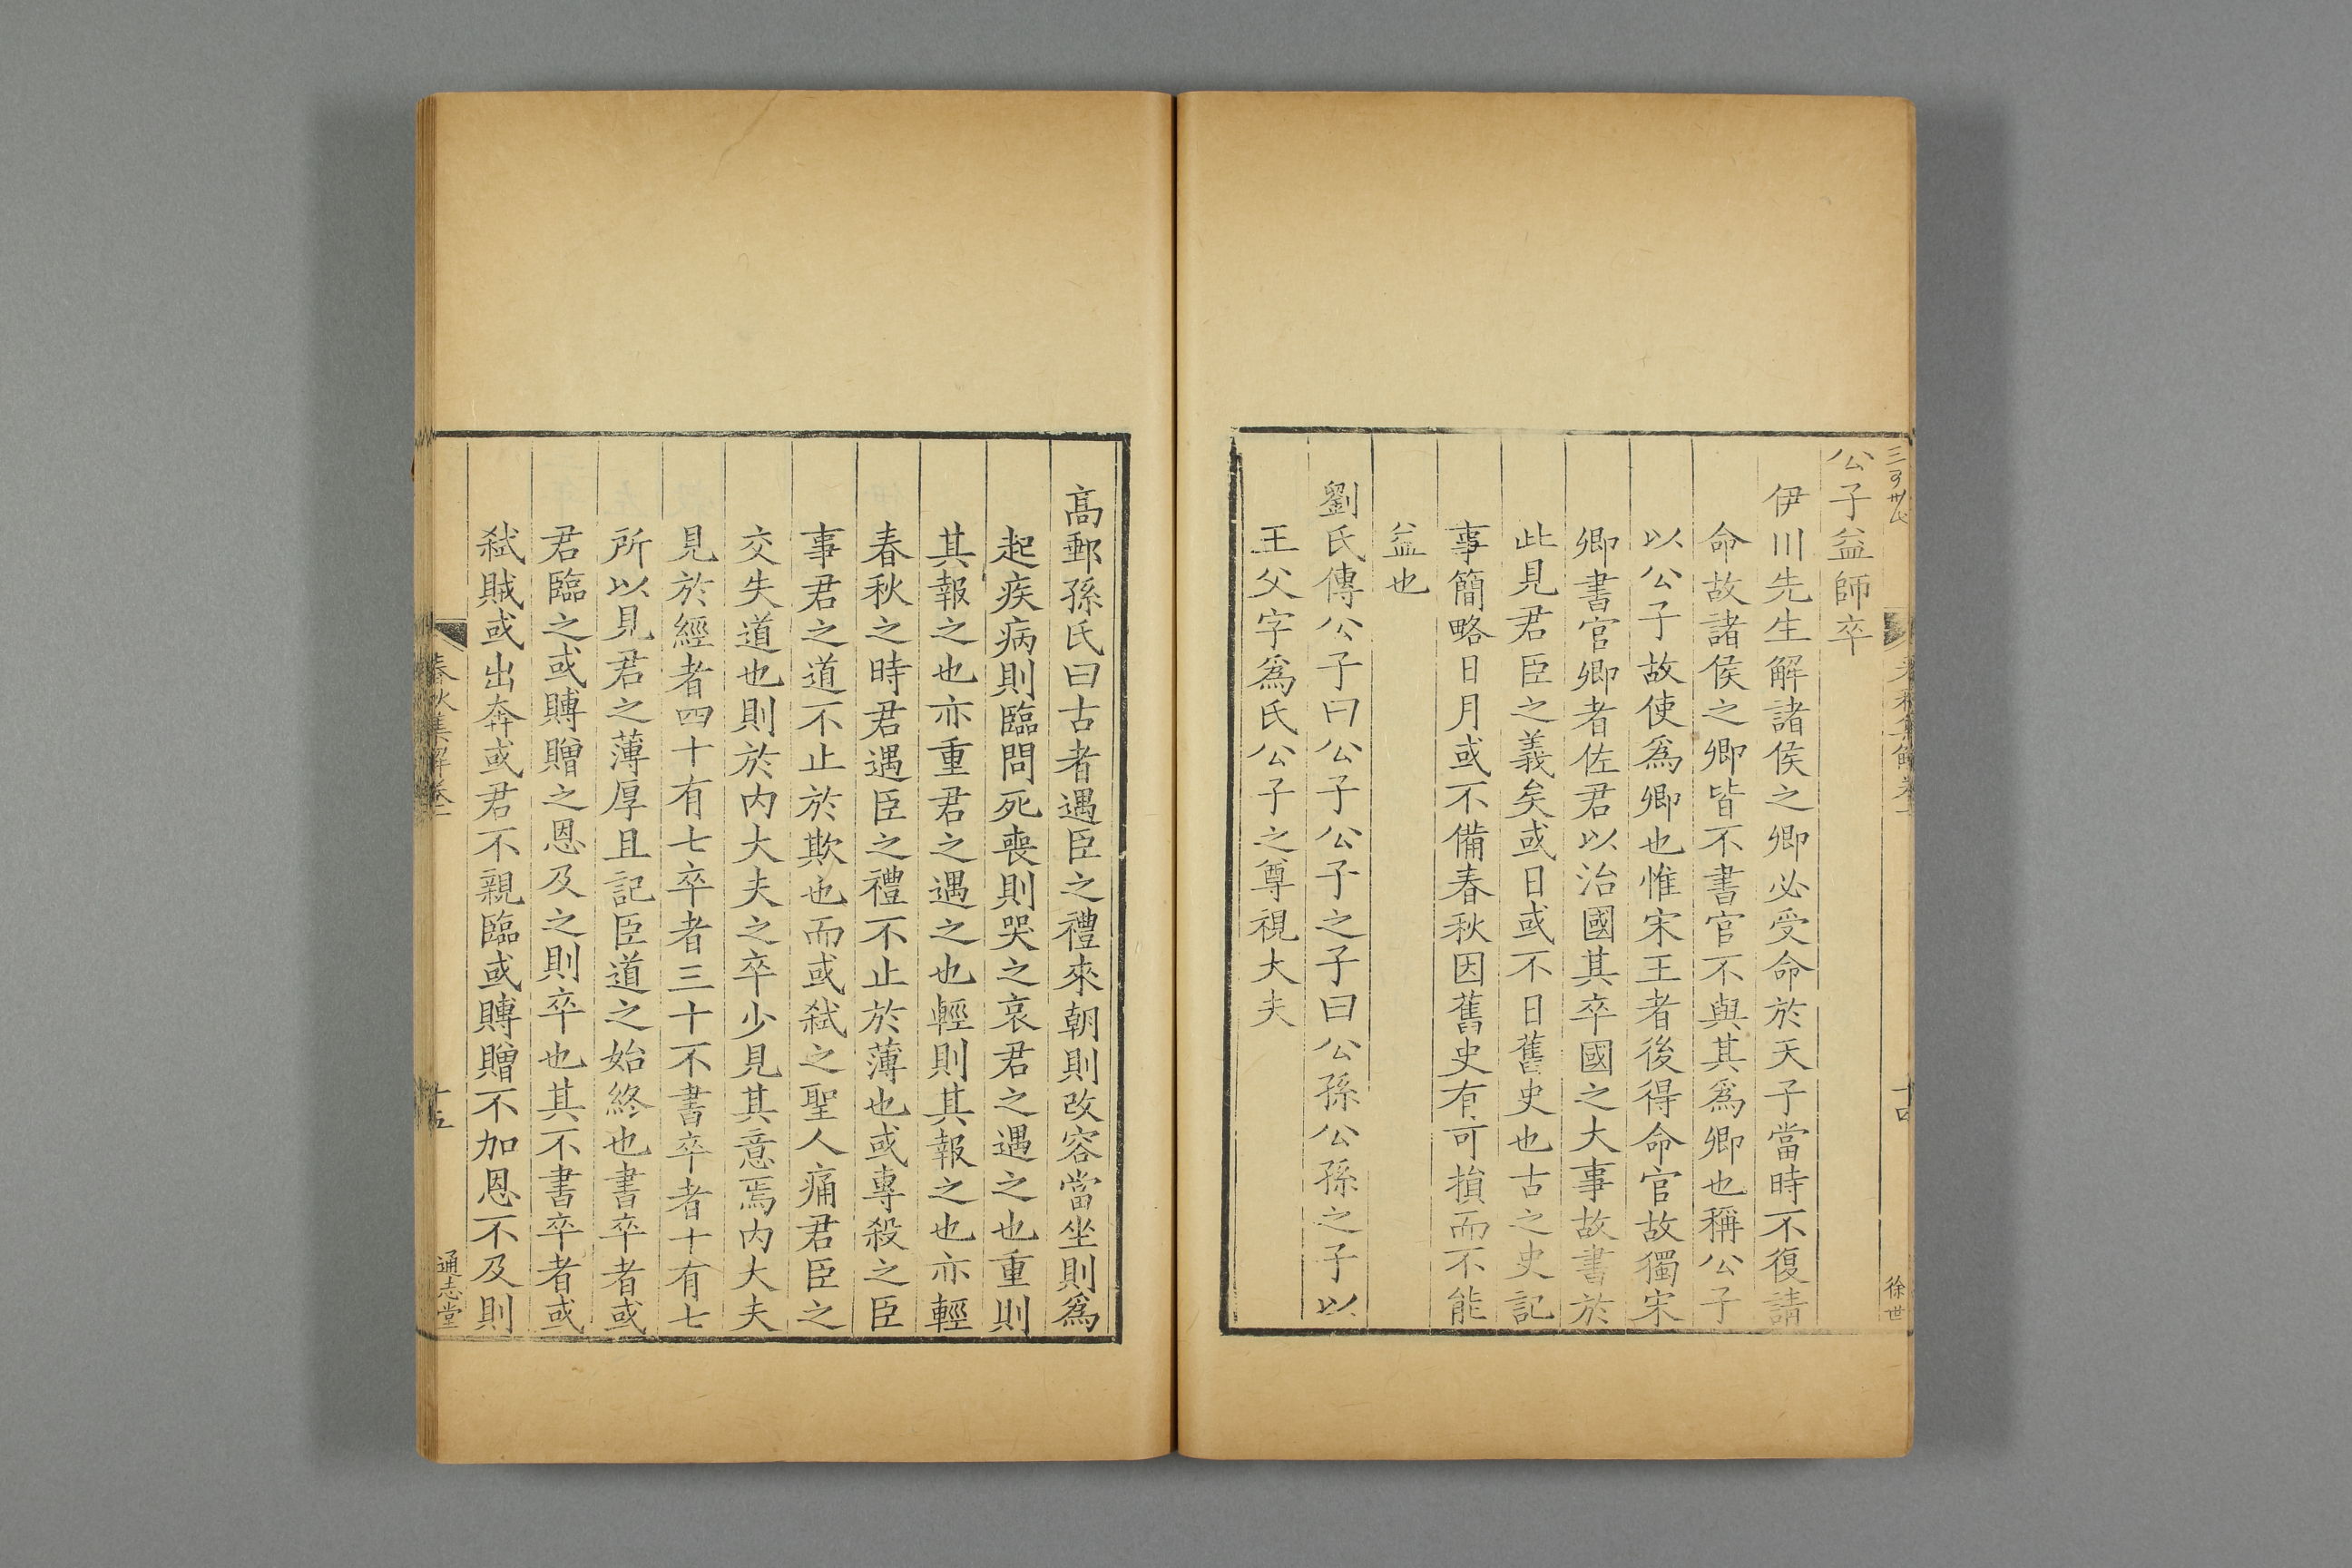 公子益師卒
伊川先生解諸侯之卿必受命於天子當時不復請
命故諸侯之卿皆不書官不與其爲卿也稱公子
以公子故使爲卿也惟宋王者後得命官故獨宋
卿書官卿者佐君以治國其卒國之大事故書於
此見君臣之義矣或日或不日舊史也古之史記
事簡略日月或不備春秋因舊史有可損而不能
益也
劉氏傳公子曰公子公子之子曰公孫公孫之子以
王父字爲氏公子之尊視大夫
十四
徐世
高郵孫氏曰古者遇臣之禮來朝則改容當坐則爲
起疾病則臨問死喪則哭之哀君之遇之也重則
其報之也亦重君之遇之也輕則其報之也亦輕
春秋之時君遇臣之禮不止於薄也或專殺之臣
事君之道不止於欺也而或弑之聖人痛君臣之
交失道也則於内大夫之卒少見其意焉内大夫
見於經者四十有七卒者三十不書卒者十有七
所以見君之薄厚且記臣道之始終也書卒者或
君臨之或賻贈之恩及之則卒也其不書卒者或
弑賊或出奔或君不親臨或賻贈不加恩不及則
春秋集解卷一
十五
通志堂